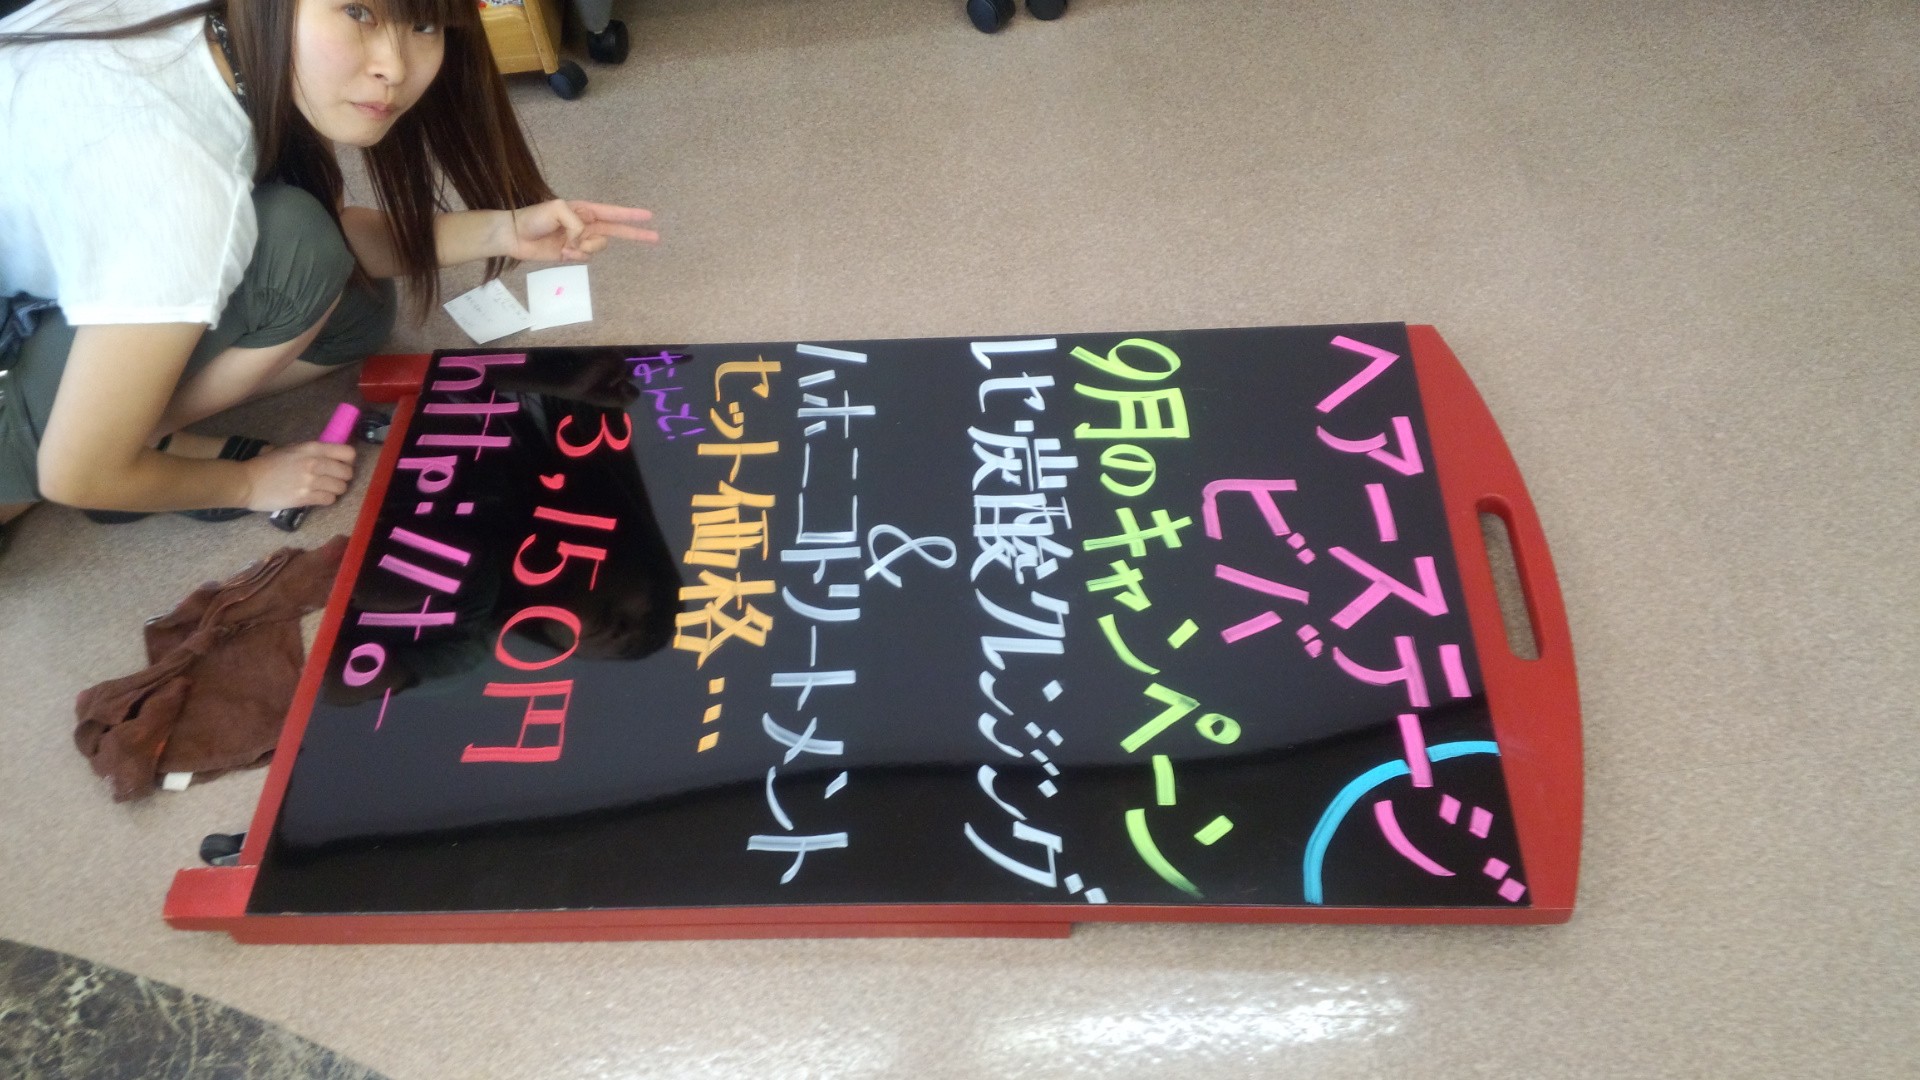 ヘアーステージ
ビバ
9月のキャンペーン
レセ炭酸クレンジング
&
ハホニコトリートメント
セット価格…
なんと!
3,150円
http://to_